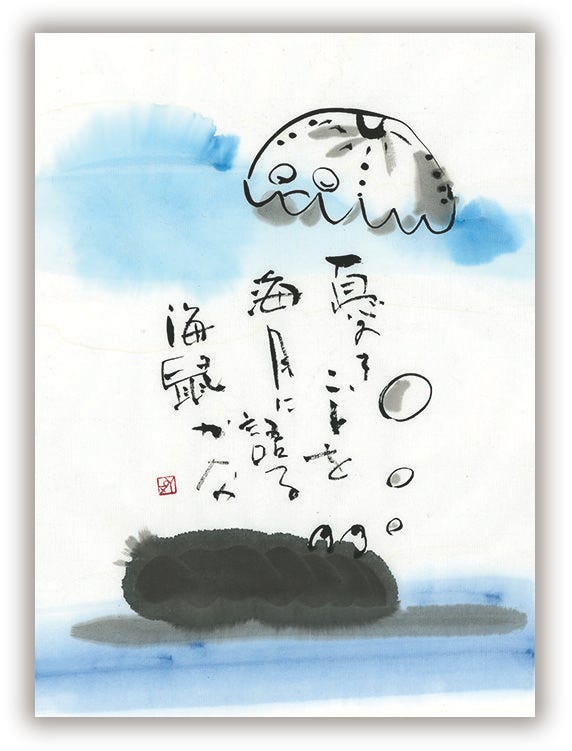 憂きことを
海月に語る
海鼠かな